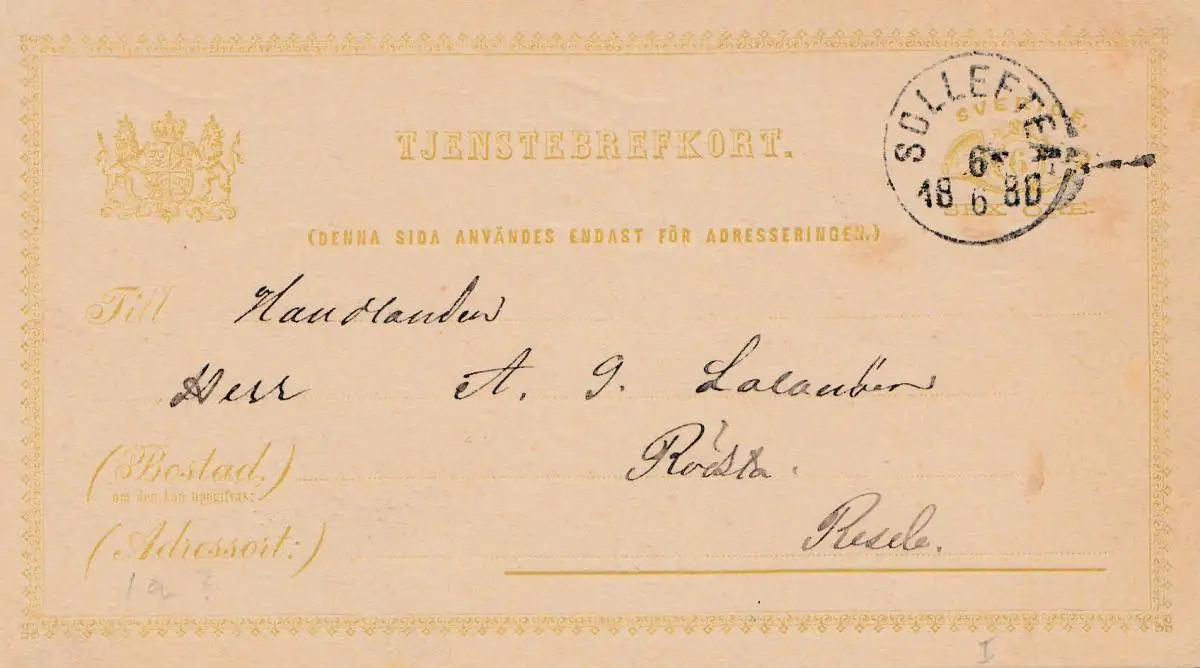 SOLLEFTEÅ
SVERIGE
6
18 6 80
SEX ÖRE.
TJENSTEBREFKORT.
(DENNA SIDA ANVÄNDES ENDAST FÖR ADRESSERINGEN.)
Till Handlanden
Herr A. G.
(Bostad,) Rödsta.
om den kan uppgifvas:
(Adressort:) Resele.
1a?
I